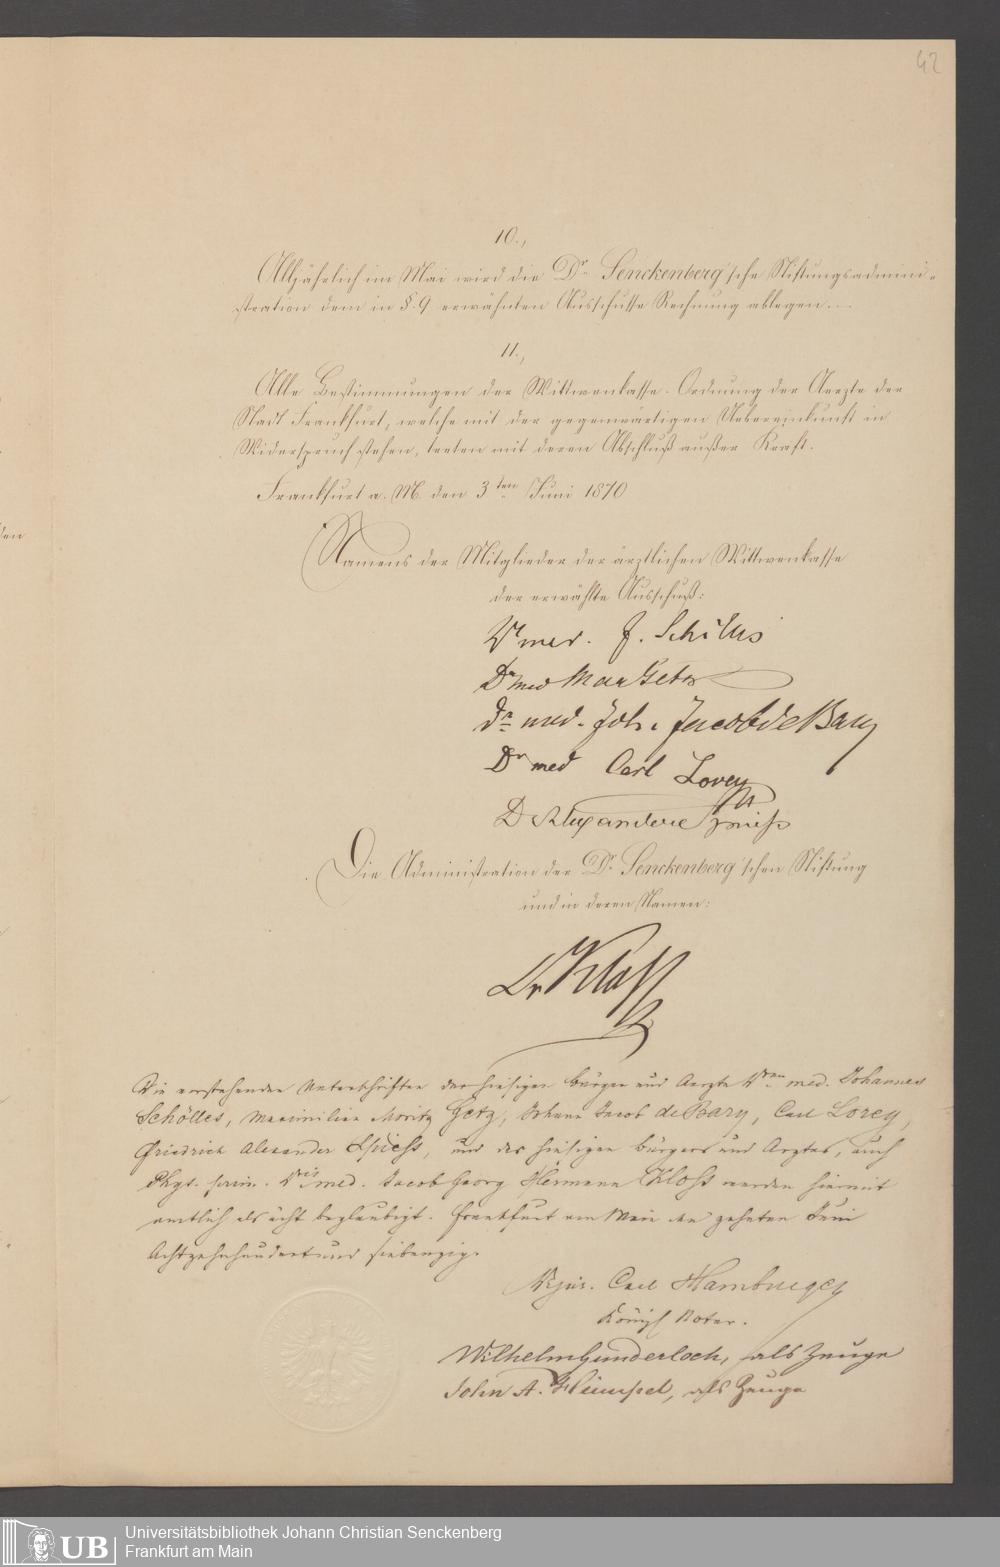 42
10.,
Alljährlich im Mai wird die Dr. Senckenberg'sche Stiftungsadmini-
stration dem in §. 9 erwähnten Ausschusse Rechnung ablegen. —
11.,
Alle Bestimmungen der Wittwenkasse-Ordnung der Aerzte der
Stadt Frankfurt, welche mit der gegenwärtigen Uebereinkunft in
Widerspruch stehen, treten mit deren Abschluß außer Kraft.
Frankfurt a. M. den 3ten Juni 1870
den
Namens der Mitglieder der ärztlichen Wittwenkasse
der erwählte Ausschuß:
Dr med.
Dr med Max Getz
Dr med. Joh. Jacob de Bary
Dr med Carl Lorey
Dr Alexander Spiess
Die Administration der Dr. Senckenberg'schen Stiftung
und in deren Namen:
Dr Kloß
Die vorstehenden Unterschriften der hiesigen Bürger und Aerzte med. Johannes
Schölles, Maximilian Moritz Getz, Johann Jacob de Bary, Carl Lorey,
Friedrich Alexander Spieß, und des hiesigen Bürgers und Arztes, auch
Phys. med. Jacob Georg Hermann Kloß werden hiermit
amtlich als ächt beglaubigt. Frankfurt am Main den zehnten Juni
Achtzehnhundert und siebenzig.
Dr jur. Carl Hamburger
Königl Notar.
Wilhelm Gunderloch, als Zeuge
John A. Himpel, als Zeuge
UB
Universitätsbibliothek Johann Christian Senckenberg
Frankfurt am Main